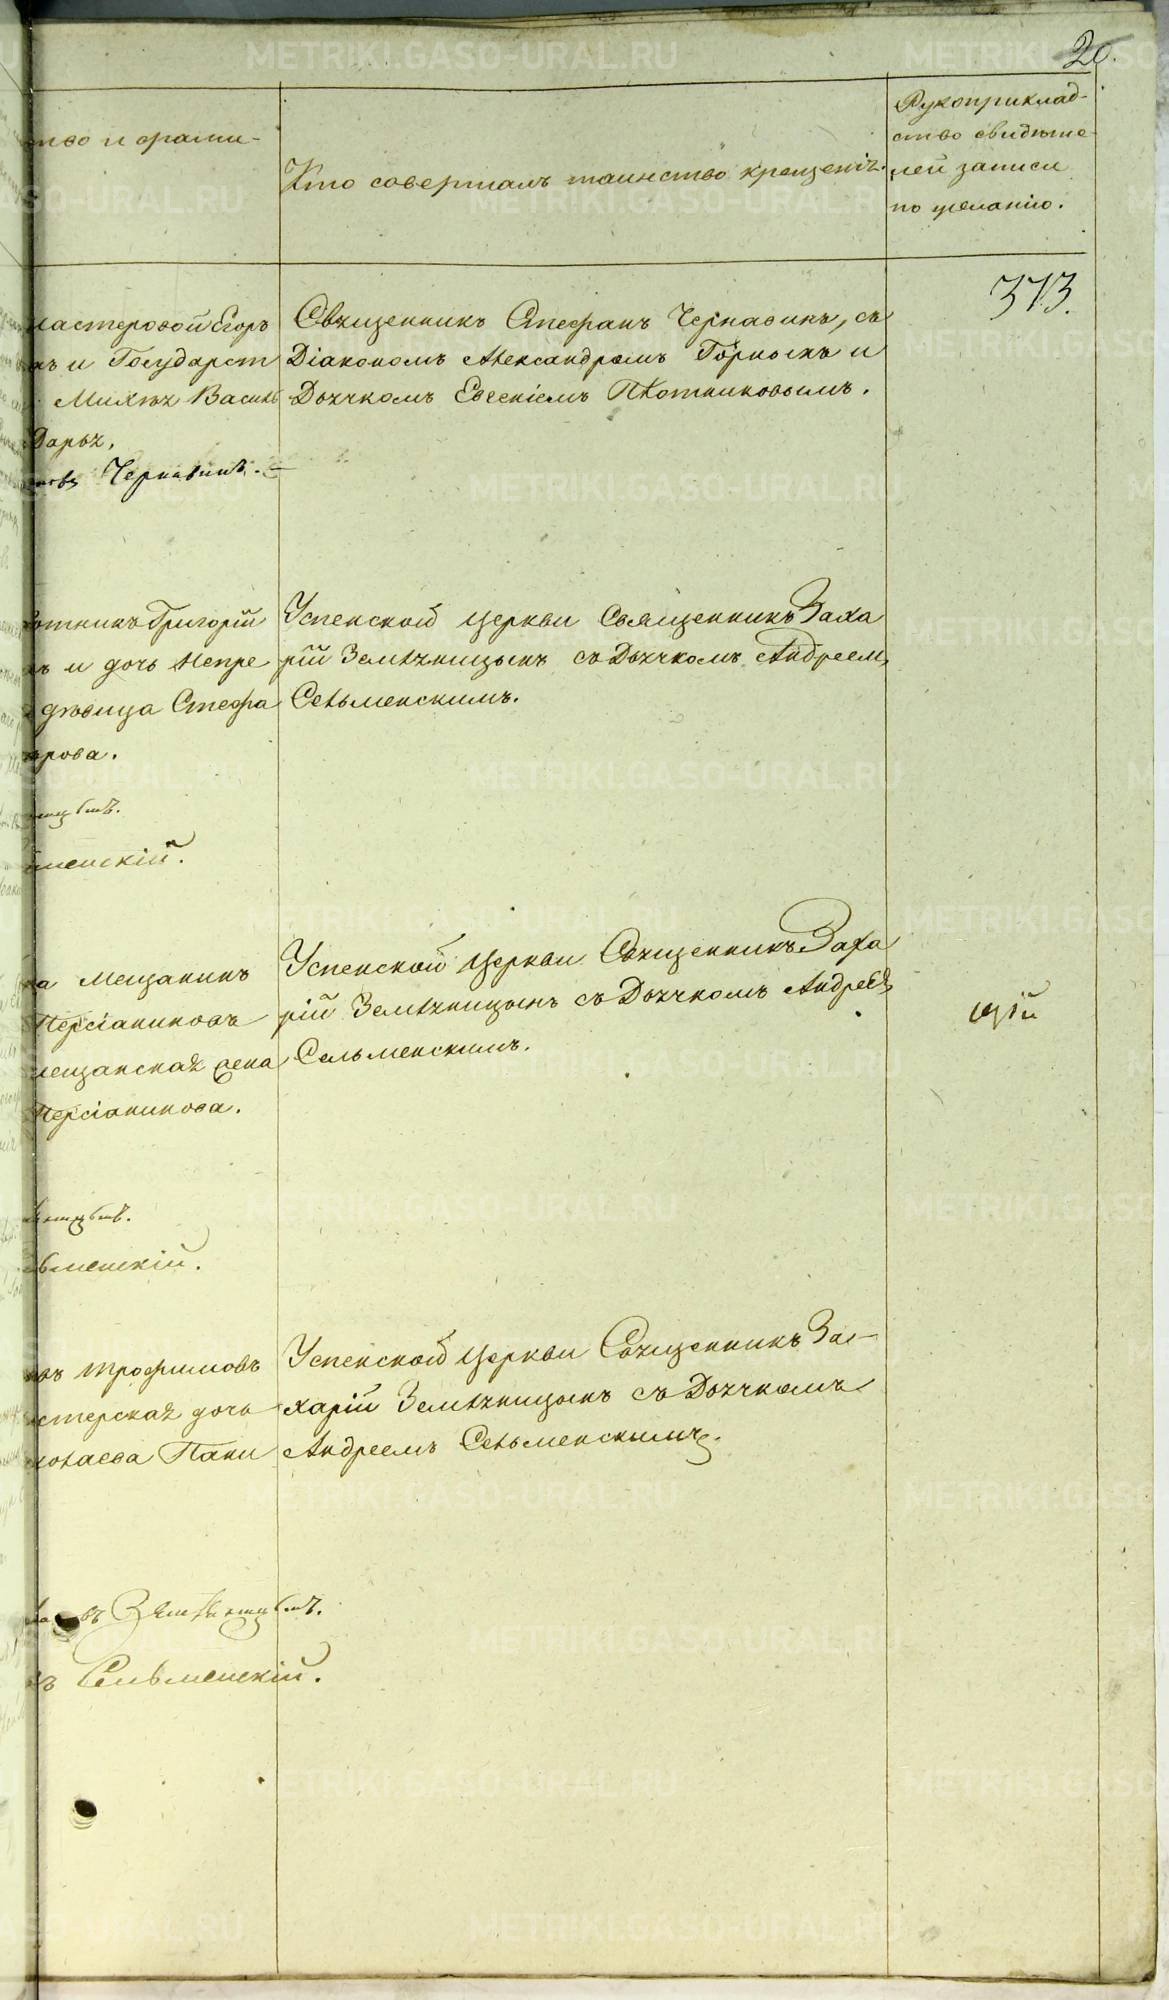 20.
тво и фами-
Кто совершалъ таинство крещенія.
Рукоприклад-
ство свидѣте-
лей записи
по желанію.
373.
мастеровой Егоръ
и Государст
Василь
Дарья,
Чернавинъ.
Священникъ Стефанъ Чернавинъ, съ
Діакономъ Александромъ Горныхъ и
Дьячкомъ Евгеніемъ Плотниковымъ.
Григорій
ъ и дочь Непре
дѣвица Стефа
рова.
менскій.
Успенской Церкви Священникъ Заха
рій Земляницынъ съ Дьячкомъ Андреем
Сельменскимъ.
на Мещанинъ
Персіаниновъ
мещанская жена
Персіанинова.
ьменскій.
Успенской Церкви Священникъ Заха
рій Земляницынъ съ Дьячкомъ Андреем
Сельменскимъ.
щій
въ Трофимовъ
стерская дочь
Успенской Церкви Священникъ За-
харій Земляницынъ съ Дьячкомъ
Андреемъ Сельменскимъ.
ъ Сельменскій.
METRIKI.GASO-URAL.RU